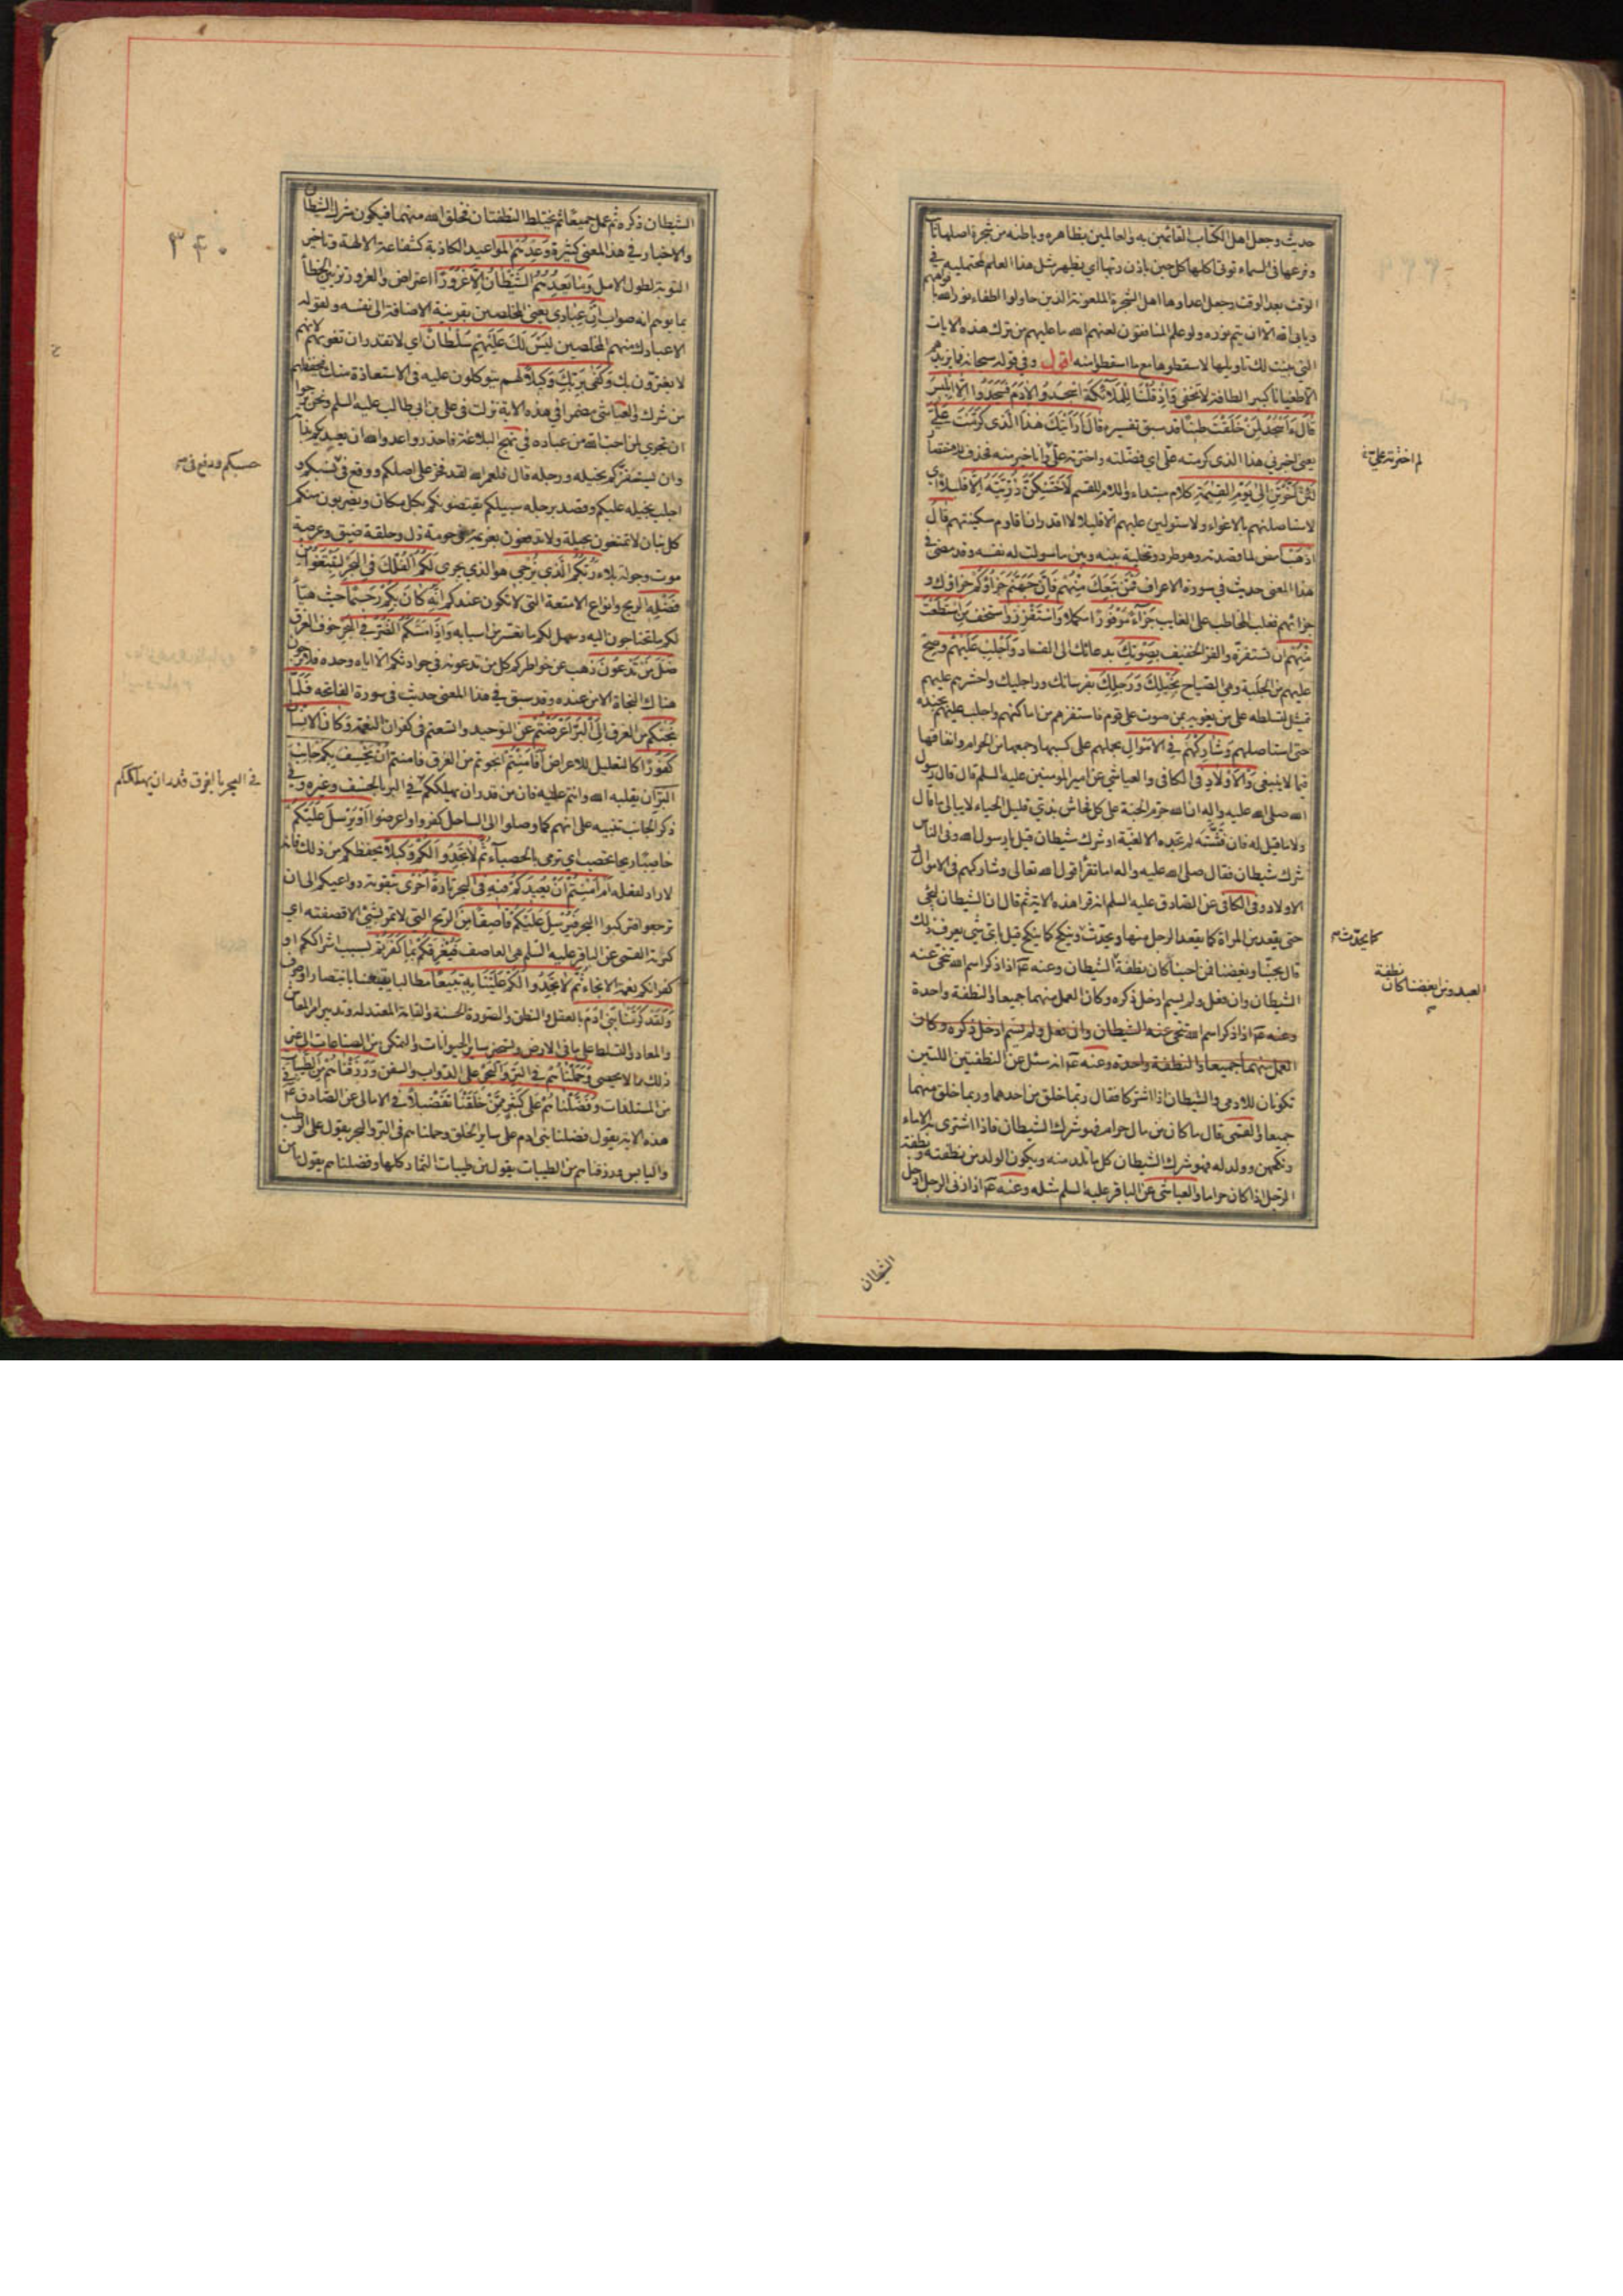 حديث وجعل اهل الكتاب القائمين به والعاملين بظاهره وباطنه من شجرة اصلها ثابت
وفرعها في السماء توتى اكلها كل حين باذن ربها اي يظهر مثل هذا العلم لمحتمليه في
الوقت بعد الوقت وجعل اعداءها اهل الشجرة الملعونة الذين حاولوا اطفاء نور الله بافواههم
ويابى الله الا ان يتم نوره ولو علم المنافقون لعنهم الله ما عليهم من ترك هذه الايات
التي بينت لك تاويلها لاسقطوها مع ما اسقطوا منه اقول وفي قوله سبحانه فما يزيدهم
الا طغيانا كبيرا لطافة لا تخفى وَاِذْ قُلْنَا لِلْمَلٰٓئِكَةِ اسْجُدُوا لِاٰدَمَ فَسَجَدُوا اِلَّا اِبْلِيسَ
قَالَ ءَاَسْجُدُ لِمَنْ خَلَقْتَ طِينًا قد سبق تفسيره قَالَ اَرَاَيْتَكَ هٰذَا الَّذى كَرَّمْتَ عَلَيَّ
يعني اخبرني هذا الذى كرمته على اي فضلته واخترته علي وانا خير منه فحذف للاختصار
لَئِنْ اَخَّرْتَنِ اِلٰى يَوْمِ الْقِيٰمَةِ كلام مبتداء واللام للقسم لَاَحْتَنِكَنَّ ذُرِّيَّتَهُ اِلَّا قَلِيلًا اي
لاستاصلنهم بالاغواء ولاستولين عليهم الا قليلا لا اقدر ان اقاوم سكينتهم قال
اذهب امض لما قصدته وهو طرد وتخلية بينه وبين ما سولت له نفسه وقد مضى في
هذا المعنى حديث في سورة الاعراف فَمَنْ تَبِعَكَ مِنْهُمْ فَاِنَّ جَهَنَّمَ جَزَاؤُكُمْ جزاؤك و
جزائهم فغلب المخاطب على الغايب جَزَاءً مَوْفُورًا مكملا وَاسْتَفْزِزْ واستخف مَنِ اسْتَطَعْتَ
مِنْهُمْ ان تستفزه والفز الخفيف بِصَوْتِكَ بدعائك الى الفساد وَاَجْلِبْ عَلَيْهِمْ وصح
عليهم من الجلبة وهي الصياح بِخَيْلِكَ وَرَجِلِكَ بفرسانك وراجليك واحشرهم عليهم
تمثيل لتسلطه على من يغويه بمن صوت على قوم فاستفزهم من اماكنهم واجلب عليهم بجنده
حتى استاصلهم وَشَارِكْهُمْ فِي الْاَمْوَالِ بحملهم على كسبها وجمعها من الحرام وانفاقها
فيما لا ينبغي وَالْاَوْلَادِ في الكافي والعياشي عن امير المومنين عليه السلم قال قال رسول
الله صلى الله عليه واله ان الله حرم الجنة على كل فحاش بذي قليل الحياء لا يبالي ما قال
ولا ما قيل له فان فتشته لم تجده الا لغية او شرك شيطان قيل يا رسول الله وفي الناس
شرك شيطان فقال صلى الله عليه واله اما تقرأ قول الله تعالى وشاركهم في الاموال
الاولاد وفي الكافي عن الصادق عليه السلم انه قرا هذه الاية ثم قال ان الشيطان ليجئ
حتى يقعد من المراة كما يقعد الرجل منها ويحدث وينكح كما ينكح قيل باي شئ يعرف ذلك
قال بحبنا وبغضنا فمن احبنا كان نطفة الشيطان وعنه ع اذا ذكر اسم الله تنحى عنه
الشيطان وان فعل ولم يسم ادخل ذكره وكان العمل منهما جميعا والنطفة واحدة
وعنه ع اذا ذكر اسم الله تنحى عنه الشيطان وان فعل ولم يسم ادخل ذكره وكان
العمل منهما جميعا والنطفة واحدة وعنه ع انه سئل عن النطفتين اللتين
تكونان للادمي والشيطان اذا اشتركا فقال ربما خلق من احدهما وربما خلق منهما
جميعا والقمى قال ما كان من مال حرام فهو شرك الشيطان فاذا اشترى به الاماء
ونكحهن وولد له فهو شرك الشيطان كل ما تلد منه ويكون الولد من نطفته ونطفة
الرجل اذا كان حراما والعياشي عن الباقر عليه السلم مثله وعنه ع اذا زنى الرجل ادخل
لم اخترته علي
كما يحدث
نطفة
العبد ومن ابغضنا كان
الشيطان
٣٤٠
الشيطان ذكره ثم عمل جميعا ثم يختلط النطفتان فيخلق الله منهما فيكون شرك الشيطان
والاخبار في هذا المعنى كثيرة وَعِدْهُمْ المواعيد الكاذبة كشفاعة الالهة وتاخير
التوبة لطول الامل وَمَا يَعِدُهُمُ الشَّيْطَانُ اِلَّا غُرُورًا اعتراض والغرور تزيين الخطأ
بما يوهم انه صواب اِنَّ عِبَادِي يعني المخلصين بقرينة الاضافة الى نفسه ولقوله
الا عبادك منهم المخلصين لَيْسَ لَكَ عَلَيْهِمْ سُلْطَانٌ اي لا تقدر ان تغويهم لانهم
لا يغترون بك وَكَفٰى بِرَبِّكَ وَكِيلًا لهم يتوكلون عليه في الاستعاذة منك فيحفظهم
من شرك والعياشي مضمرا في هذه الاية نزلت في علي بن ابي طالب عليه السلم ونحن نرجوا
ان تجري لمن احب الله من عباده في نهج البلاغة فاحذروا عدو الله ان يعديكم بدائه
وان يستفزكم بخيله ورجله قال فلعمر الله لقد فخر على اصلكم ووقع في نسبكم و
اجلب بخيله عليكم وقصد برجله سبيلكم يقتنصونكم بكل مكان ويضربون منكم
كل بنان لا تمتنعون بحيلة ولا تدفعون بعزيمة في حومة ذل وحلقة ضيق وعرصة
موت وجولة بلاء رَبُّكُمُ الَّذي يُزْجِي هو الذي يجرى لَكُمُ الْفُلْكَ فِي الْبَحْرِ لِتَبْتَغُوا مِنْ
فَضْلِهِ الربح وانواع الامتعة التي لا تكون عندكم اِنَّهُ كَانَ بِكُمْ رَحِيمًا حيث هيا
لكم ما تحتاجون اليه وسهل لكم ما تعسر من اسبابه وَاِذَا مَسَّكُمُ الضُّرُّ فِي الْبَحْرِ خوف الغرق
ضَلَّ مَنْ تَدْعُونَ ذهب عن خواطركم كل من تدعونه في حوادثكم الا اياه وحده فلا ترجون
هناك النجاة الا من عنده وقد سبق في هذا المعنى حديث في سورة الفاتحه فَلَمَّا
نَجّٰيكُمْ من الغرق اِلَى الْبَرِّ اَعْرَضْتُمْ عن التوحيد واتسعتم في كفران النعمة وَكَانَ الْاِنْسَانُ
كَفُورًا كالتعليل للاعراض اَفَاَمِنْتُمْ انجوتم من الغرق فامنتم اَنْ يَخْسِفَ بِكُمْ جَانِبَ
الْبَرِّ ان يقلبه الله وانتم عليه فان من قدر ان يهلككم في البر بالخسف وغيره وفي
ذكر الجانب تنبيه على انهم كما وصلوا الى الساحل كفروا واعرضوا اَوْ يُرْسِلَ عَلَيْكُمْ
حَاصِبًا ريحا تحصب اي ترمي بالحصباء ثُمَّ لَا تَجِدُوا لَكُمْ وَكِيلًا يحفظكم من ذلك فانه
لا راد لفعله اَمْ اَمِنْتُمْ اَنْ يُعِيدَكُمْ فِيهِ في البحر تَارَةً اُخْرٰى بتقوية دواعيكم الى ان
ترجعوا فتركبوا البحر فَيُرْسِلَ عَلَيْكُمْ قَاصِفًا مِنَ الرِّيحِ التي لا تمر بشئ الا قصفته اي
كسرته القمى عن الباقر عليه السلم هي العاصف فَيُغْرِقَكُمْ بِمَا كَفَرْتُمْ بسبب اشراككم او
كفرانكم نعمة الانجاء ثُمَّ لَا تَجِدُوا لَكُمْ عَلَيْنَا بِهِ تَبِيعًا مطالبا يتبعنا بانتصار او صرف
وَلَقَدْ كَرَّمْنَا بَنِي اٰدَمَ بالعقل والنطق والصورة الحسنة والقامة المعتدلة وتدبير امر المعاش
والمعاد والتسلط على ما في الارض وتسخير ساير الحيوانات والتمكن من الصناعات الى غير
ذلك مما لا يحصى وَحَمَلْنَاهُمْ فِي الْبَرِّ وَالْبَحْرِ على الدواب والسفن وَرَزَقْنَاهُمْ مِنَ الطَّيِّبَاتِ
من المستلذات وَفَضَّلْنَاهُمْ عَلٰى كَثِيرٍ مِمَّنْ خَلَقْنَا تَفْضِيلًا في الامالي عن الصادق ع في
هذه الاية يقول فضلنا بني ادم على ساير الخلق وحملناهم في البر والبحر يقول على الرطب
واليابس ورزقناهم من الطيبات يقول من طيبات الثمار كلها وفضلناهم يقول
حسبكم ودفع في
في البحر بالغرق قدر ان يهلككم